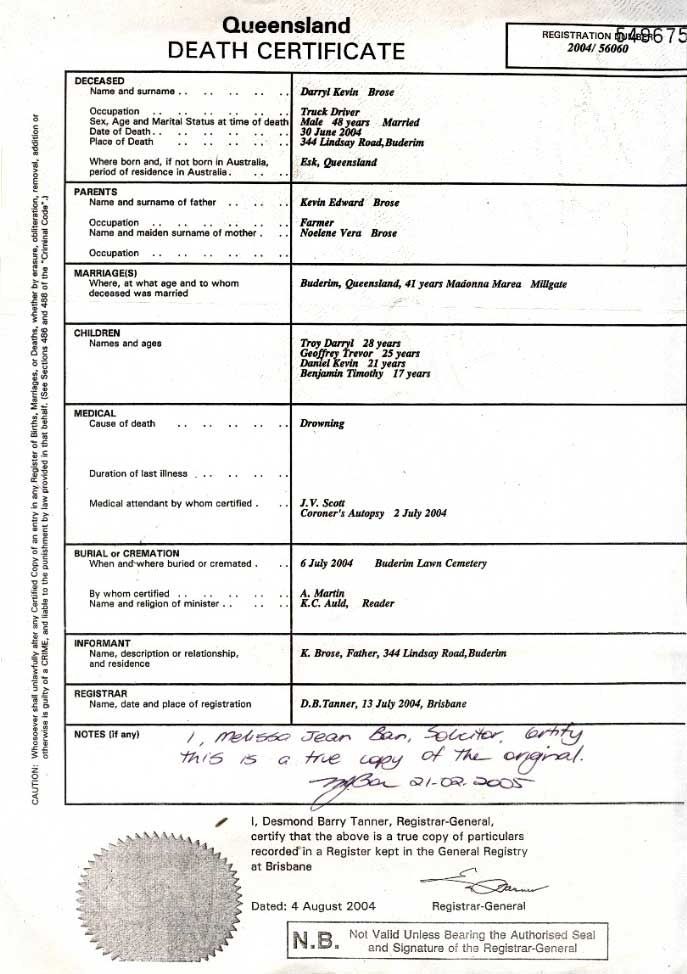 Queensland
DEATH CERTIFICATE
REGISTRATION NUMBER 549675
2004/56060
DECEASED
Name and surname . . . . . . . . . . Darryl Kevin Brose
Occupation . . . . . . . . . . . . Truck Driver
Sex, Age and Marital Status at time of death Male 48 years Married
Date of Death . . . . . . . . . . . . 30 June 2004
Place of Death . . . . . . . . . . 344 Lindsay Road, Buderim
Where born and, if not born in Australia, Esk, Queensland
period of residence in Australia . . . . .
PARENTS
Name and surname of father . . . . . . Kevin Edward Brose
Occupation . . . . . . . . . . . . Farmer
Name and maiden surname of mother . . . Noelene Vera Brose
Occupation . . . . . . . . . . . .
MARRIAGE(S)
Where, at what age and to whom Buderim, Queensland, 41 years Madonna Marea Millgate
deceased was married
CHILDREN
Names and ages Troy Darryl 28 years
Geoffrey Trevor 25 years
Daniel Kevin 21 years
Benjamin Timothy 17 years
MEDICAL
Cause of death . . . . . . . . . . Drowning
Duration of last illness . . . . . . . . .
Medical attendant by whom certified . . . J.V. Scott
Coroner's Autopsy 2 July 2004
BURIAL or CREMATION
When and where buried or cremated . . . 6 July 2004 Buderim Lawn Cemetery
By whom certified . . . . . . . . . . A. Martin
Name and religion of minister . . . . . . K.C. Auld, Reader
INFORMANT
Name, description or relationship, K. Brose, Father, 344 Lindsay Road, Buderim
and residence
REGISTRAR
Name, date and place of registration D.B.Tanner, 13 July 2004, Brisbane
NOTES (if any) I, Melissa Jean Ban, Solicitor, certify
this is a true copy of the original.
21-02-2005
I, Desmond Barry Tanner, Registrar-General,
certify that the above is a true copy of particulars
recorded in a Register kept in the General Registry
at Brisbane
Dated: 4 August 2004 Registrar-General
N.B. Not Valid Unless Bearing the Authorised Seal
and Signature of the Registrar-General
CAUTION: Whosoever shall unlawfully alter any Certified Copy of an entry in any Register of Births, Marriages, or Deaths, whether by erasure, obliteration, removal, addition or
otherwise is guilty of a CRIME, and liable to the punishment by law provided in that behalf. (See Sections 486 and 488 of the "Criminal Code".)